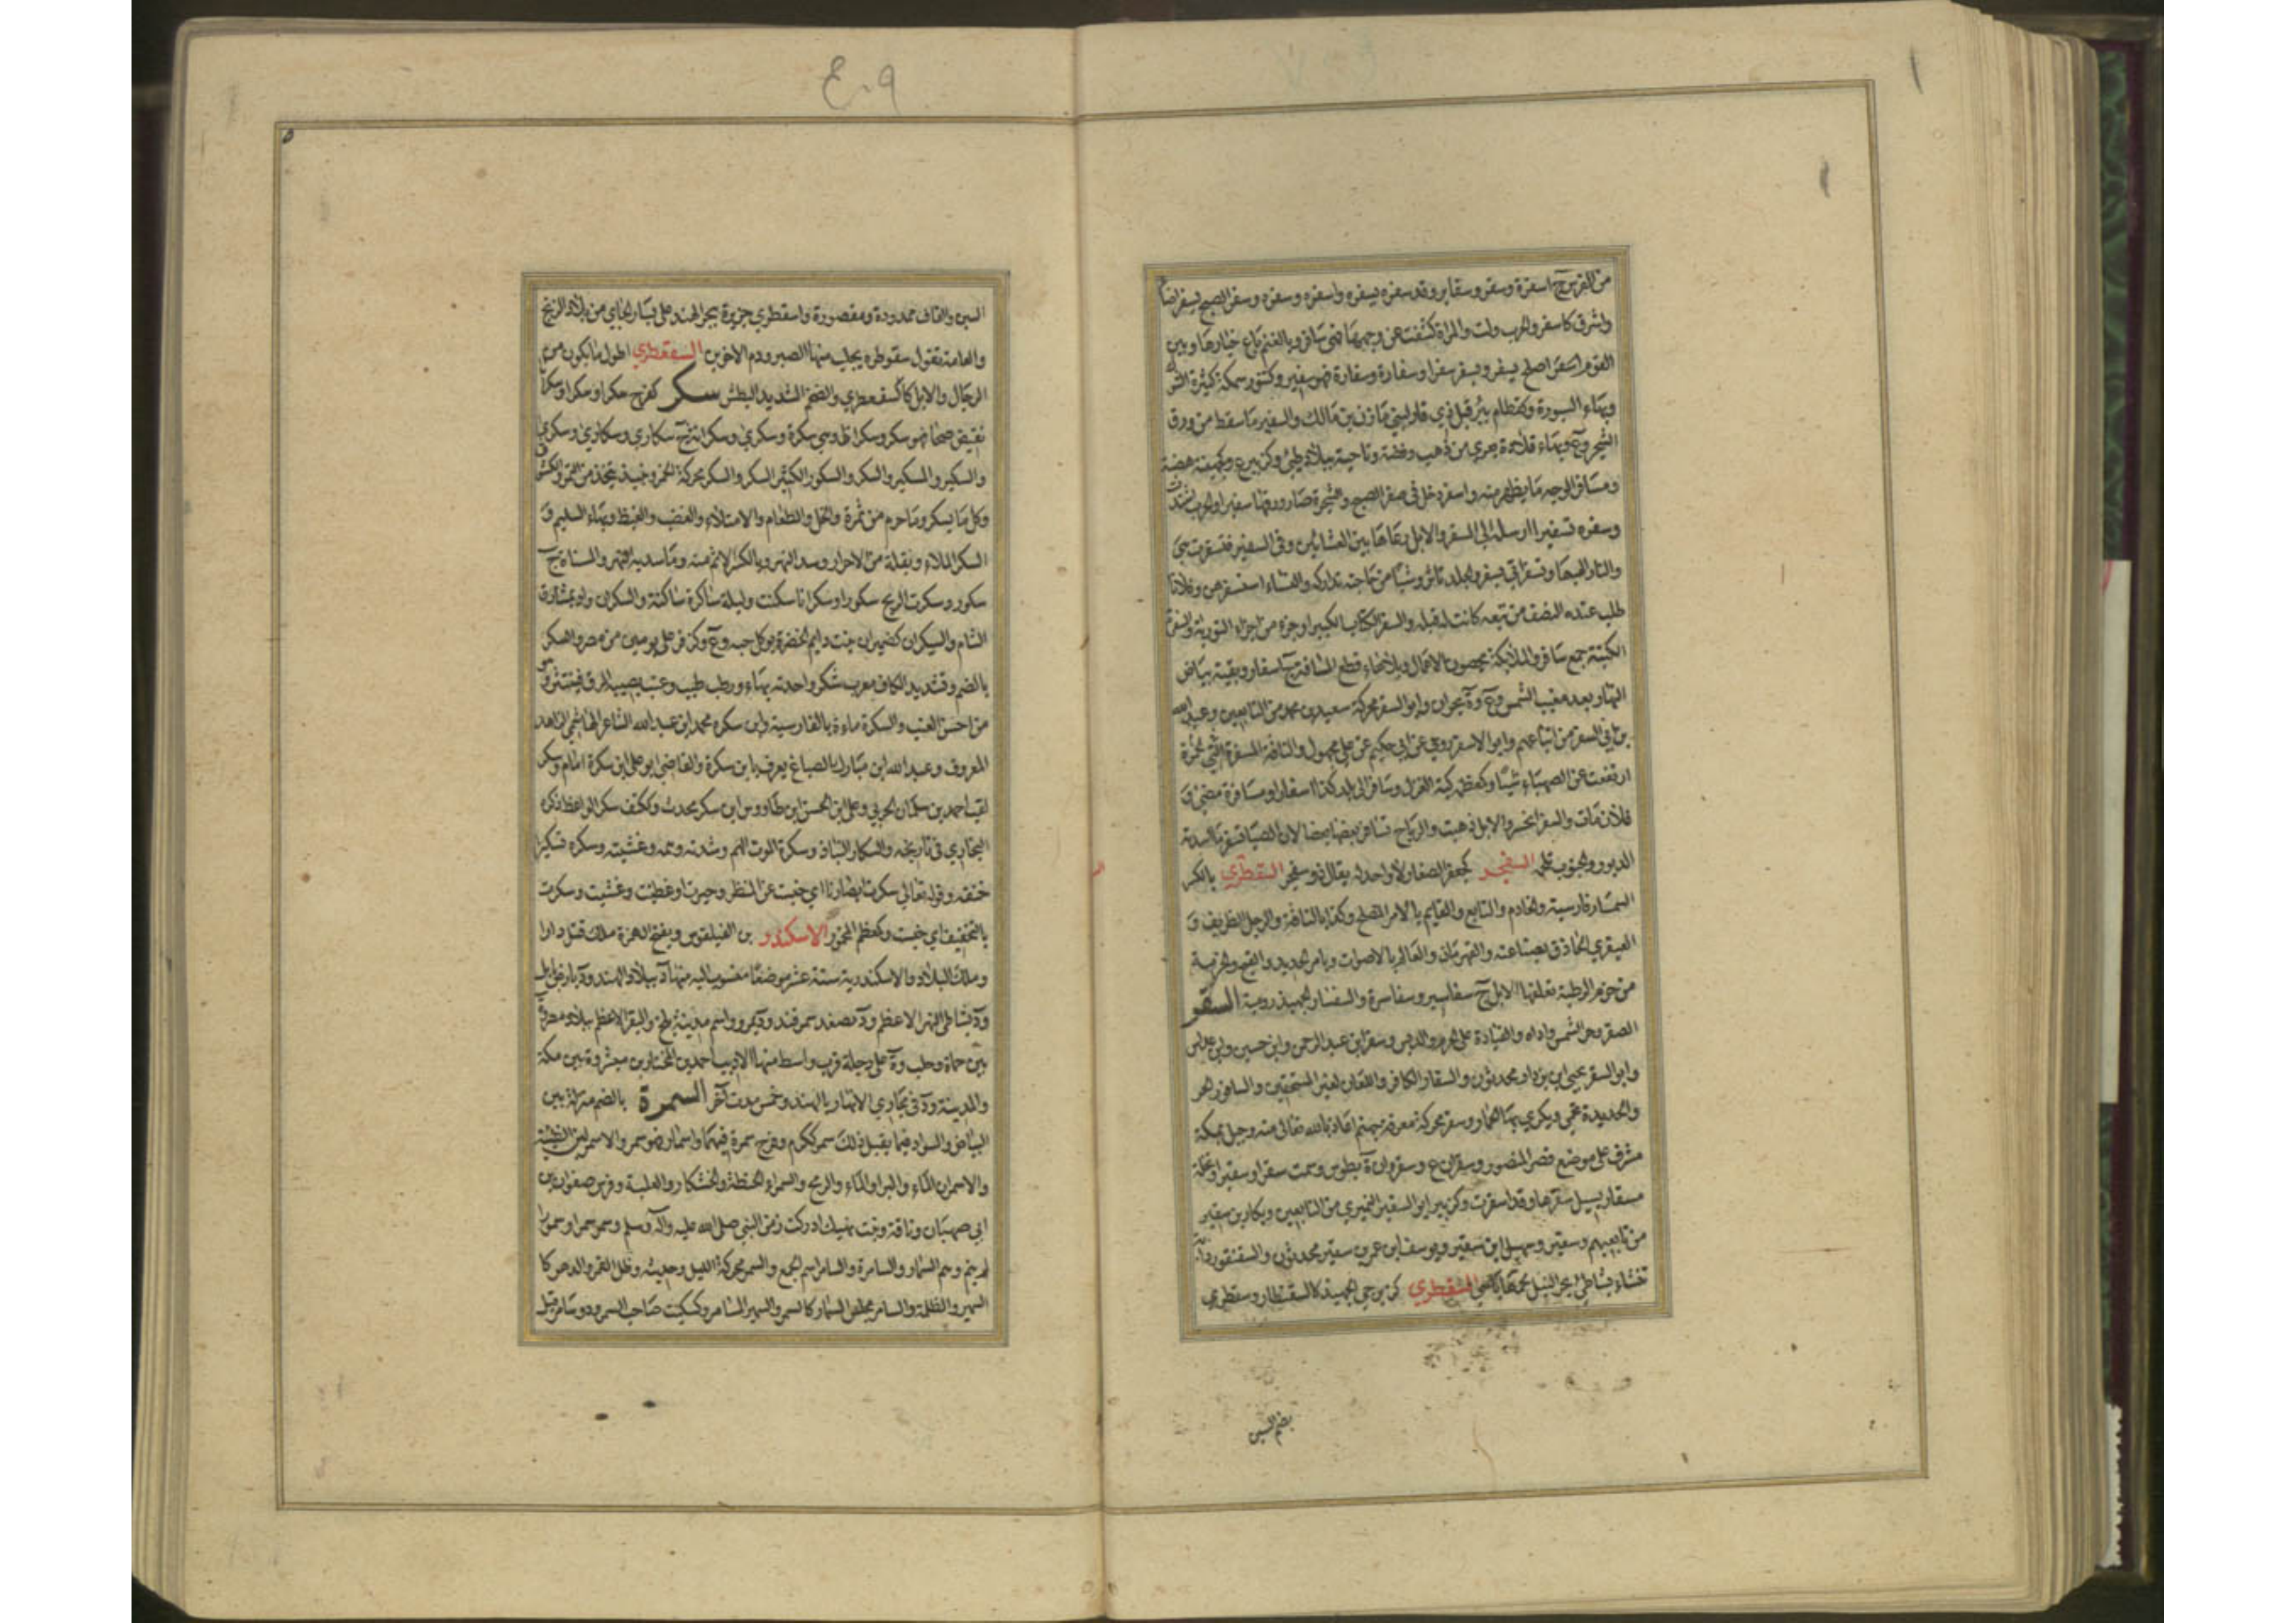 من الفرس ج اسفرة وسفر وسفاير وقد سفره يسفره واسفره وسفره وسفر الصبح يسفر اضاء
واشرق كاسفر والحرب ولت والمراة كشفت عن وجهها فهي سافر وبالغنم باع خيارها وبين
القوم اصلح يسفر ويسفر سفرا وسفارة وسفارة فهو سفير وكتنور سمكة كثيرة الشوك
وبهاء السبورة وكقطام بئر قبل ذي قار لبني مازن بن مالك والسفير ما سقط من ورق
الشجر وع وبهاء قلادة بعرى من ذهب وفضة وناحية ببلاد طيئ وكزبير ع وكجهينة هضبة
ومسافر الوجه ما يظهر منه واسفر دخل في سفر الصبح والشجرة صار ورقها سفيرا والحرب اشتدت
وسفره تسفيرا ارسله الى السفر والابل رعاها بين العشائين وفي السفير فتسفرت هي
والنار الهبها وتسفر اتى بسفر والجلد تاثر وشيئا من حاجته تداركه والنساء استسفرهن وفلانا
طلب عنده النصف من تبعة كانت له قبله والسفر الكتاب الكبير او جزء من اجزاء التورية والسفرة
الكتبة جمع سافر والملائكة يحصون الاعمال وبلا هاء قطع المسافة ج اسفار وبقية بياض
النهار بعد مغيب الشمس وع وة بحران وابو السفر محركة سعيد بن محمد من التابعين وعبد الله
بن ابي السفر من اتباعهم وابو الاسفر روى عن ابي حكيم عن علي مجهول والناقة المسفرة الحمرة
ارتفعت عن الصهباء شيئا وكمعظمة كبة الغزل وسافر الى بلد كذا اسفارا ومسافرة مضى و
فلان مات والسفر انحسر والابل ذهبت والرياح تسافر بعضها بعضا لان الصبا تسفر ما اسدته
الدبور والجنوب تلحمه السفنجر كجعفر الصغار لا واحد له يقال ذو سفنجر السفطري بالكسر
السمسار فارسية والخادم والتابع والقايم بالامر المصلح وكذا بالناقة والرجل الظريف و
العبقري الحاذق بصناعته والقهرمان والعالم بالاصوات وبامر الحديد والفيج والحزمة
من حزم الرطبة تعلفها الابل ج سفاسير وسفاسرة والسفنسار الجهبذ رومية السقر
الصقر وحر الشمس واذاه والقيادة على الحرم والدبس وسقر ابن عبد الرحمن وابن حسين وابن عباس
وابو السقر يحيى ابن يزداد محدثون والسقار الكافر واللعان لغير المستحقين والساقور الحر
والحديدة تحمى ويكوى بها الحمار وسقر محركة معرفة جهنم اعاذنا الله تعالى منه وجبل بمكة
مشرف على موضع قصر المنصور وسقران ع وسقروان ة بطوس وسمت سقرا وسقيرا ونخلة
مسقار يسيل سقرها وقد اسقرت وكزبير ابو السقير النميري من التابعين وبكار بن سقير
من تابعيهم وسقير وسهيل ابن سقير ويوسف ابن عمر بن سقير محدثون والسقنقور دابة
تنشاء بشاطئ بحر النيل لحمها باهي السقطري كزبرجي الجهبذ كالسقطار وسقطرى
بضم السين
٤٠٩
السين والقاف ممدودة ومقصورة واسقطرى جزيرة ببحر الهند على يسار الجائي من بلاد الزنج
والعامة تقول سقوطره يجلب منها الصبر ودم الاخوين السقعطري اطول ما يكون من
الرجال والابل كالسقعطري والضخم الشديد البطش سكر كفرح سكرا وسكرا وسكرانا
نقيض صحا فهو سكر وسكران وهي سكرة وسكرى وسكرانة ج سكارى وسكارى وسكرى
والسكير والمسكير والسكر والسكور الكثير السكر والسكر محركة الخمر ونبيذ يتخذ من التمر والكشوث
وكل ما يسكر وما حرم من ثمرة والخل والطعام والامتلاء والغضب والغيظ وبهاء السليم و
السكر الملاء وبقلة من الاحرار وسد النهر وبالكسر الاسم منه وما سد به النهر والمسناة ج
سكور وسكرت الريح سكورا وسكرانا سكنت وليلة ساكرة ساكنة والسكران واد بمشارف
الشام والسيكران كضيمران نبت دايم الخضرة يوكل حبه وع وكزفر ع على يومين من مصر والسكر
بالضم وتشديد الكاف معرب شكر واحدته بهاء ورطب طيب وعنب يصيبه المرق فينتثر وهو
من احسن العنب والسكرة ماءة بالقادسية وابن سكره محمد ابن عبد الله الشاعر الهاشمي الزاهد
المعروف وعبد الله ابن مبارك بالصباغ يعرف بابن سكرة والقاضي ابو علي ابن سكرة امام وسكر
لقب احمد بن سلمان الحربي وعلي ابن الحسن ابن طاووس ابن سكر محدث وككتف سكر الواعظ ذكره
البخاري في تاريخه والسكار النباذ وسكرة الموت والهم شدته وهمه وغشيته وسكره تسكيرا
خنقه وقوله تعالى سكرت ابصارنا اي حبست عن النظر وحيرت او غطيت وغشيت وسكرت
بالتخفيف اي حبست وكمعظم المخمور الاسكندر بن الفيلقوس وبفتح الهمزة ملك قتل دارا
وملك البلاد والاسكندرية ستة عشر موضعا منسوب اليه منها د ببلاد الهند ود بارض بابل
ود بشاطئ النهر الاعظم ود بصغد سمرقند ود بمرو واسم مدينة بلخ والثغر الاعظم ببلاد مصر وة
بين حماة وحلب وة على دجلة قرب واسط منها الاديب احمد بن المختار بن مبشر وة بين مكة
والمدينة ود في مجاري الانهار بالهند وخمس مدن اخر السمرة بالضم منزلة بين
البياض والسواد فيما يقبل ذلك سمر ككرم وفرح سمرة فيهما واسمار فهو اسمر والاسمر لبن الظبية
والاسمران الماء والبر او الماء والريح والسمراء الحنطة والخشكار والعلبة وفرس صفوان بن
ابي صهبان وناقة وبنت نهيك ادركت زمن النبي صلى الله عليه واله وسلم وسمر سمرا وسمورا
لم ينم وهم السمار والسامرة والسامر اسم الجمع والسمر محركة الليل وحديثه وظل القمر والدهر كا
السمير والظلمة والسامر مجلس السمار كالسمر والسمير المسامر وكسكيت صاحب السمر وذو سامر قيل